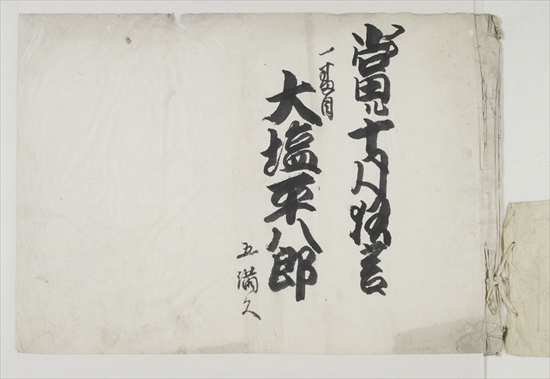 當ル十月狂言
一番目
大塩平八郎
五満久